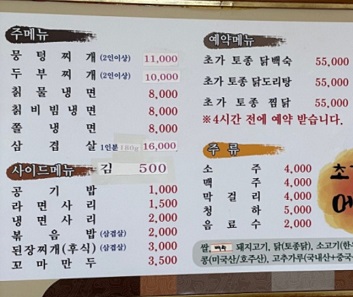 주메뉴
뭉텅찌개(2인이상) 11,000
두부찌개(2인이상) 10,000
칡물냉면 8,000
칡비빔냉면 8,000
쫄냉면 8,000
삼겹살 1인분 180g 16,000
사이드메뉴
김 500
공기밥 1,000
라면사리 1,500
냉면사리 2,000
볶음밥(삼겹살) 2,000
된장찌개(후식)(삼겹살) 3,000
꼬마만두 3,500
예약메뉴
초가 토종 닭백숙 55,000
초가 토종 닭도리탕 55,000
초가 토종 찜닭 55,000
※4시간 전에 예약 받습니다.
주류
소주 4,000
맥주 4,000
막걸리 4,000
청하 5,000
음료수 2,000
쌀, 돼지고기, 닭(토종닭), 소고기(한
콩(미국산/호주산), 고추가루(국내산+중국
초
에